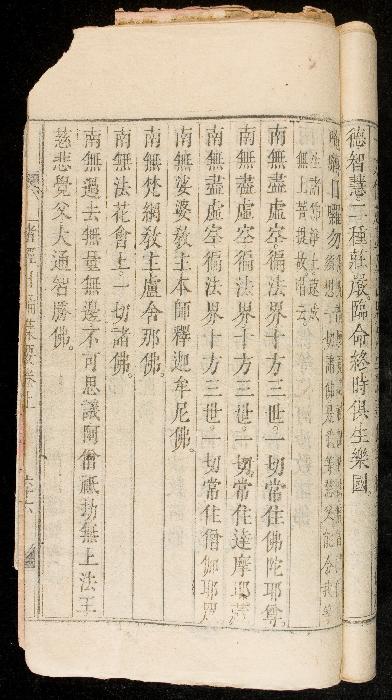 德智慧二種莊嚴臨命終時俱生樂國
生諸佛淨土速成
無上菩提故唱云
南無盡虛空徧法界十方三世一切常住佛陀耶尊
南無盡虛空徧法界十方三世一切常住達摩耶
南無盡虛空徧法界十方三世一切常住僧伽耶眾
南無娑婆敎主本師釋迦牟尼佛
南無梵網敎主盧舍那佛
南無法花會上一切諸佛
南無過去無量無邊不可思議阿僧祗劫無上法王
慈悲覺父大通智勝佛
諸經日誦集要卷上